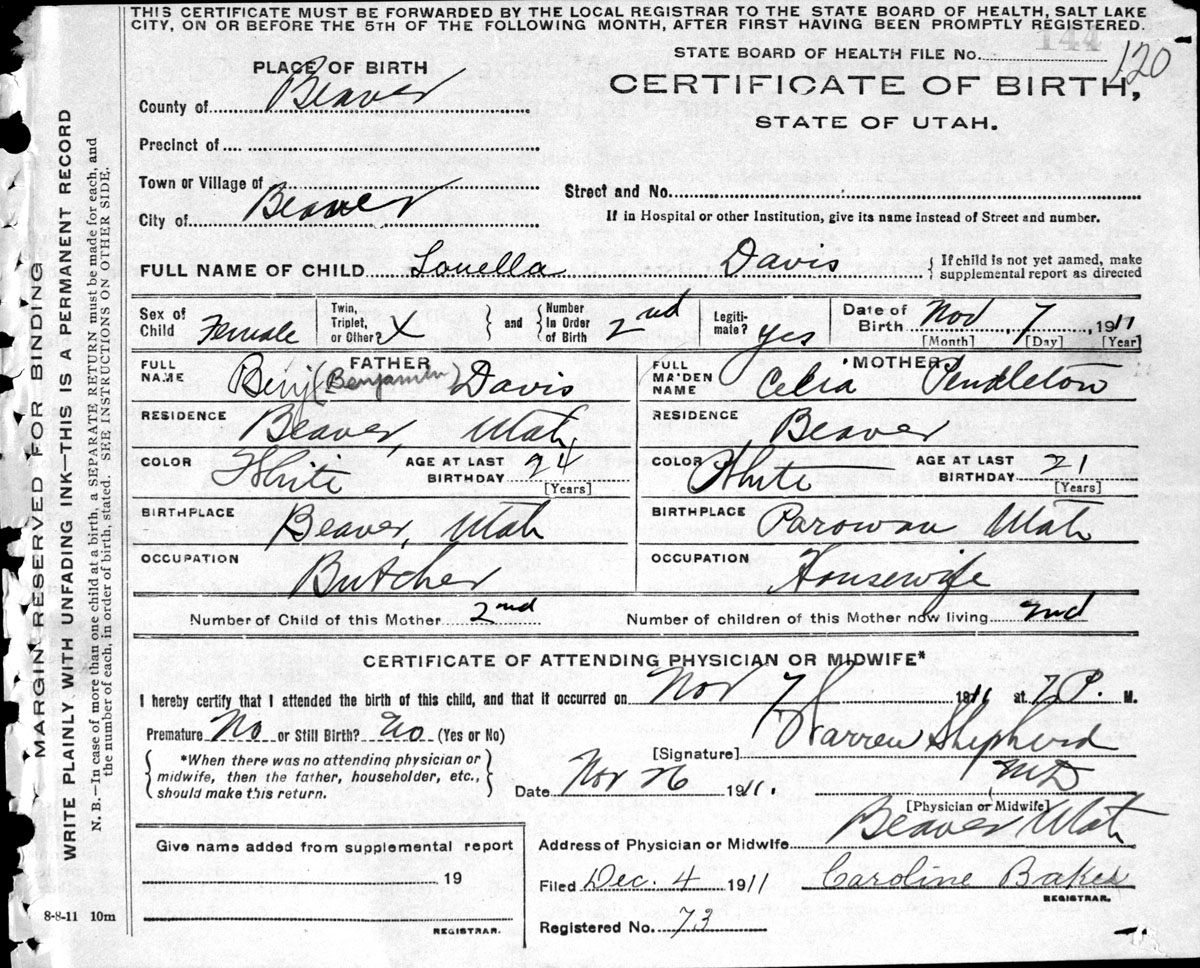 THIS CERTIFICATE MUST BE FORWARDED BY THE LOCAL REGISTRAR TO THE STATE BOARD OF HEALTH, SALT LAKE
CITY, ON OR BEFORE THE 5TH OF THE FOLLOWING MONTH, AFTER FIRST HAVING BEEN PROMPTLY REGISTERED.
STATE BOARD OF HEALTH FILE No. 144 120
PLACE OF BIRTH
CERTIFICATE OF BIRTH,
STATE OF UTAH.
County of Beaver
Precinct of
Town or Village of
Street and No.
City of Beaver
If in Hospital or other Institution, give its name instead of Street and number.
FULL NAME OF CHILD Louella Davis { If child is not yet named, make
supplemental report as directed
Sex of Child Female Twin, Triplet, or Other? X } and { Number In Order of Birth 2nd Legiti-mate? Yes Date of Birth Nov 7, 1911
[Month] [Day] [Year]
FATHER
FULL NAME Benj (Benjamin) Davis
RESIDENCE Beaver, Utah
COLOR White AGE AT LAST BIRTHDAY 24
[Years]
BIRTHPLACE Beaver, Utah
OCCUPATION Butcher
MOTHER
FULL MAIDEN NAME Celia Pendleton
RESIDENCE Beaver
COLOR White AGE AT LAST BIRTHDAY 21
[Years]
BIRTHPLACE Parowan Utah
OCCUPATION Housewife
Number of Child of this Mother 2nd Number of children of this Mother now living 2nd
CERTIFICATE OF ATTENDING PHYSICIAN OR MIDWIFE*
I hereby certify that I attended the birth of this child, and that it occurred on Nov 7 1911 at 7 P. M.
Premature No or Still Birth? No (Yes or No)
[Signature] Warren Shepherd
MD
{ *When there was no attending physician or
midwife, then the father, householder, etc.,
should make this return. }
Date Nov 26 1911.
[Physician or Midwife]
Address of Physician or Midwife Beaver Utah
Filed Dec. 4 1911 Caroline Baker
REGISTRAR.
Registered No. 73
Give name added from supplemental report
19
REGISTRAR.
8-8-11 10m
MARGIN RESERVED FOR BINDING
WRITE PLAINLY WITH UNFADING INK—THIS IS A PERMANENT RECORD
N. B.—In case of more than one child at a birth, a SEPARATE RETURN must be made for each, and
the number of each, in order of birth, stated. SEE INSTRUCTIONS ON OTHER SIDE.